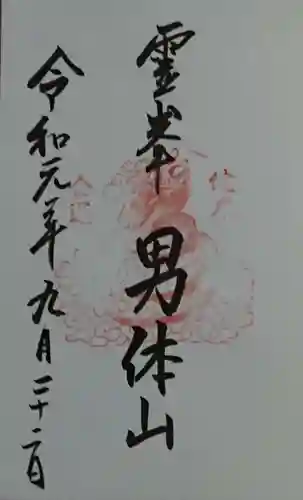 霊峯
男体山
令和元年九月二十二日